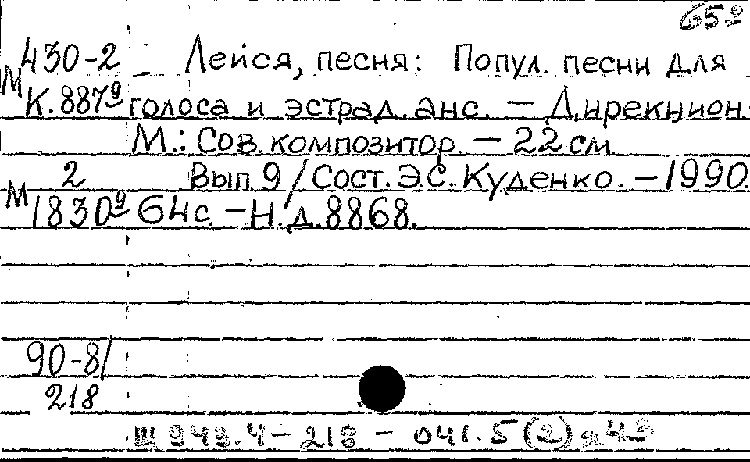 65º
М 430-2 Лейся, песня: Попул. песни для
К.887º голоса и эстрад. анс. — Дирекцион.
М.: Сов. композитор. — 22 см
М 2 Вып. 9 / Сост. Э.С. Куденко. — 1990.
1830º 64 с. — Н. д. 8868.
90-8/
218
Щ 943.4 - 218 - 041.5 (2) я 4